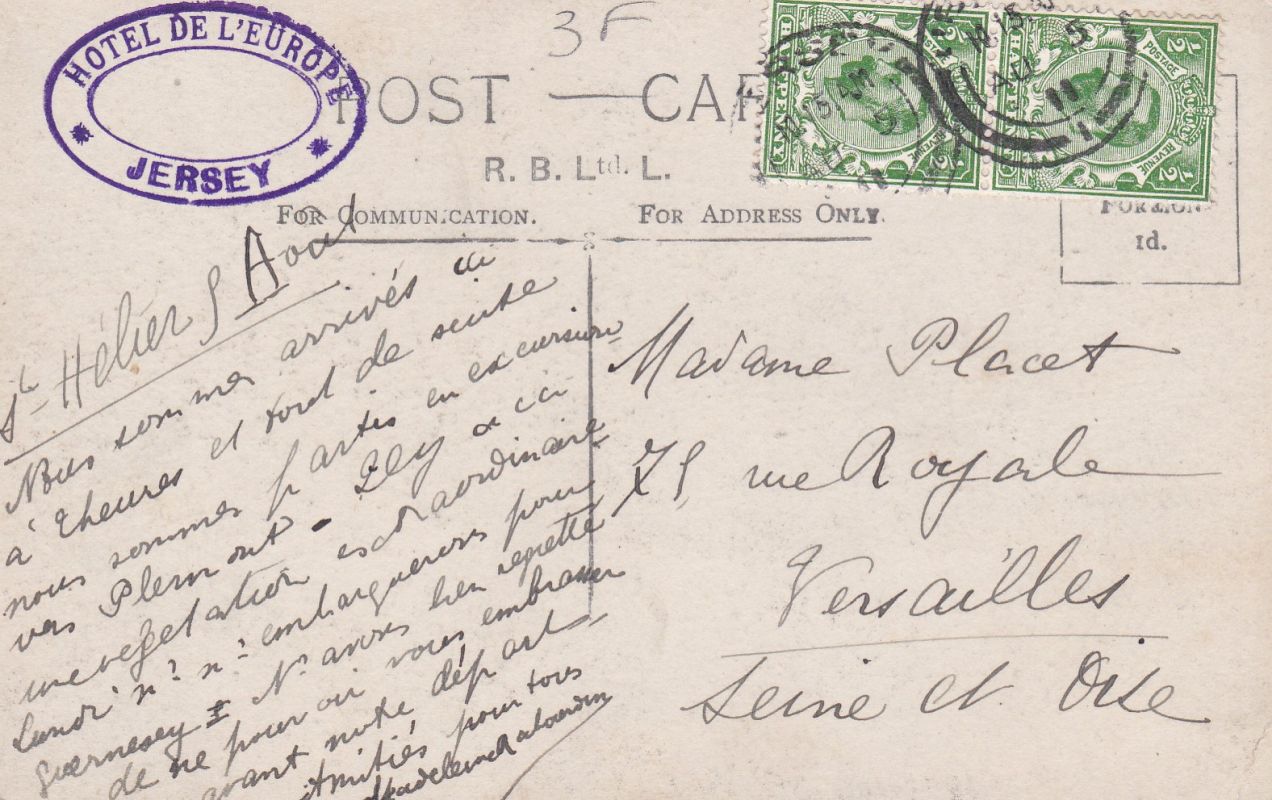 HOTEL DE L'EUROPE
JERSEY
3F
POST CARD
R. B. Ltd. L.
FOR COMMUNICATION.
FOR ADDRESS ONLY.
POSTAGE REVENUE
1/2 1/2
POSTAGE REVENUE
1/2 1/2
AU 5
11
1d.
St Hélier 5 Août
Nous sommes arrivés ici
à 2 heures et tout de suite
nous sommes partis en excursion
vers Plemont - Il y a ici
une végétation extraordinaire
Lundi n. n. embarquerons pour
Guernesey N. avons bien regretté
de ne pouvoir vous embrasser
avant notre départ
Amitiés pour tous
Madeleine
Madame Placet
75 rue Royale
Versailles
Seine et Oise